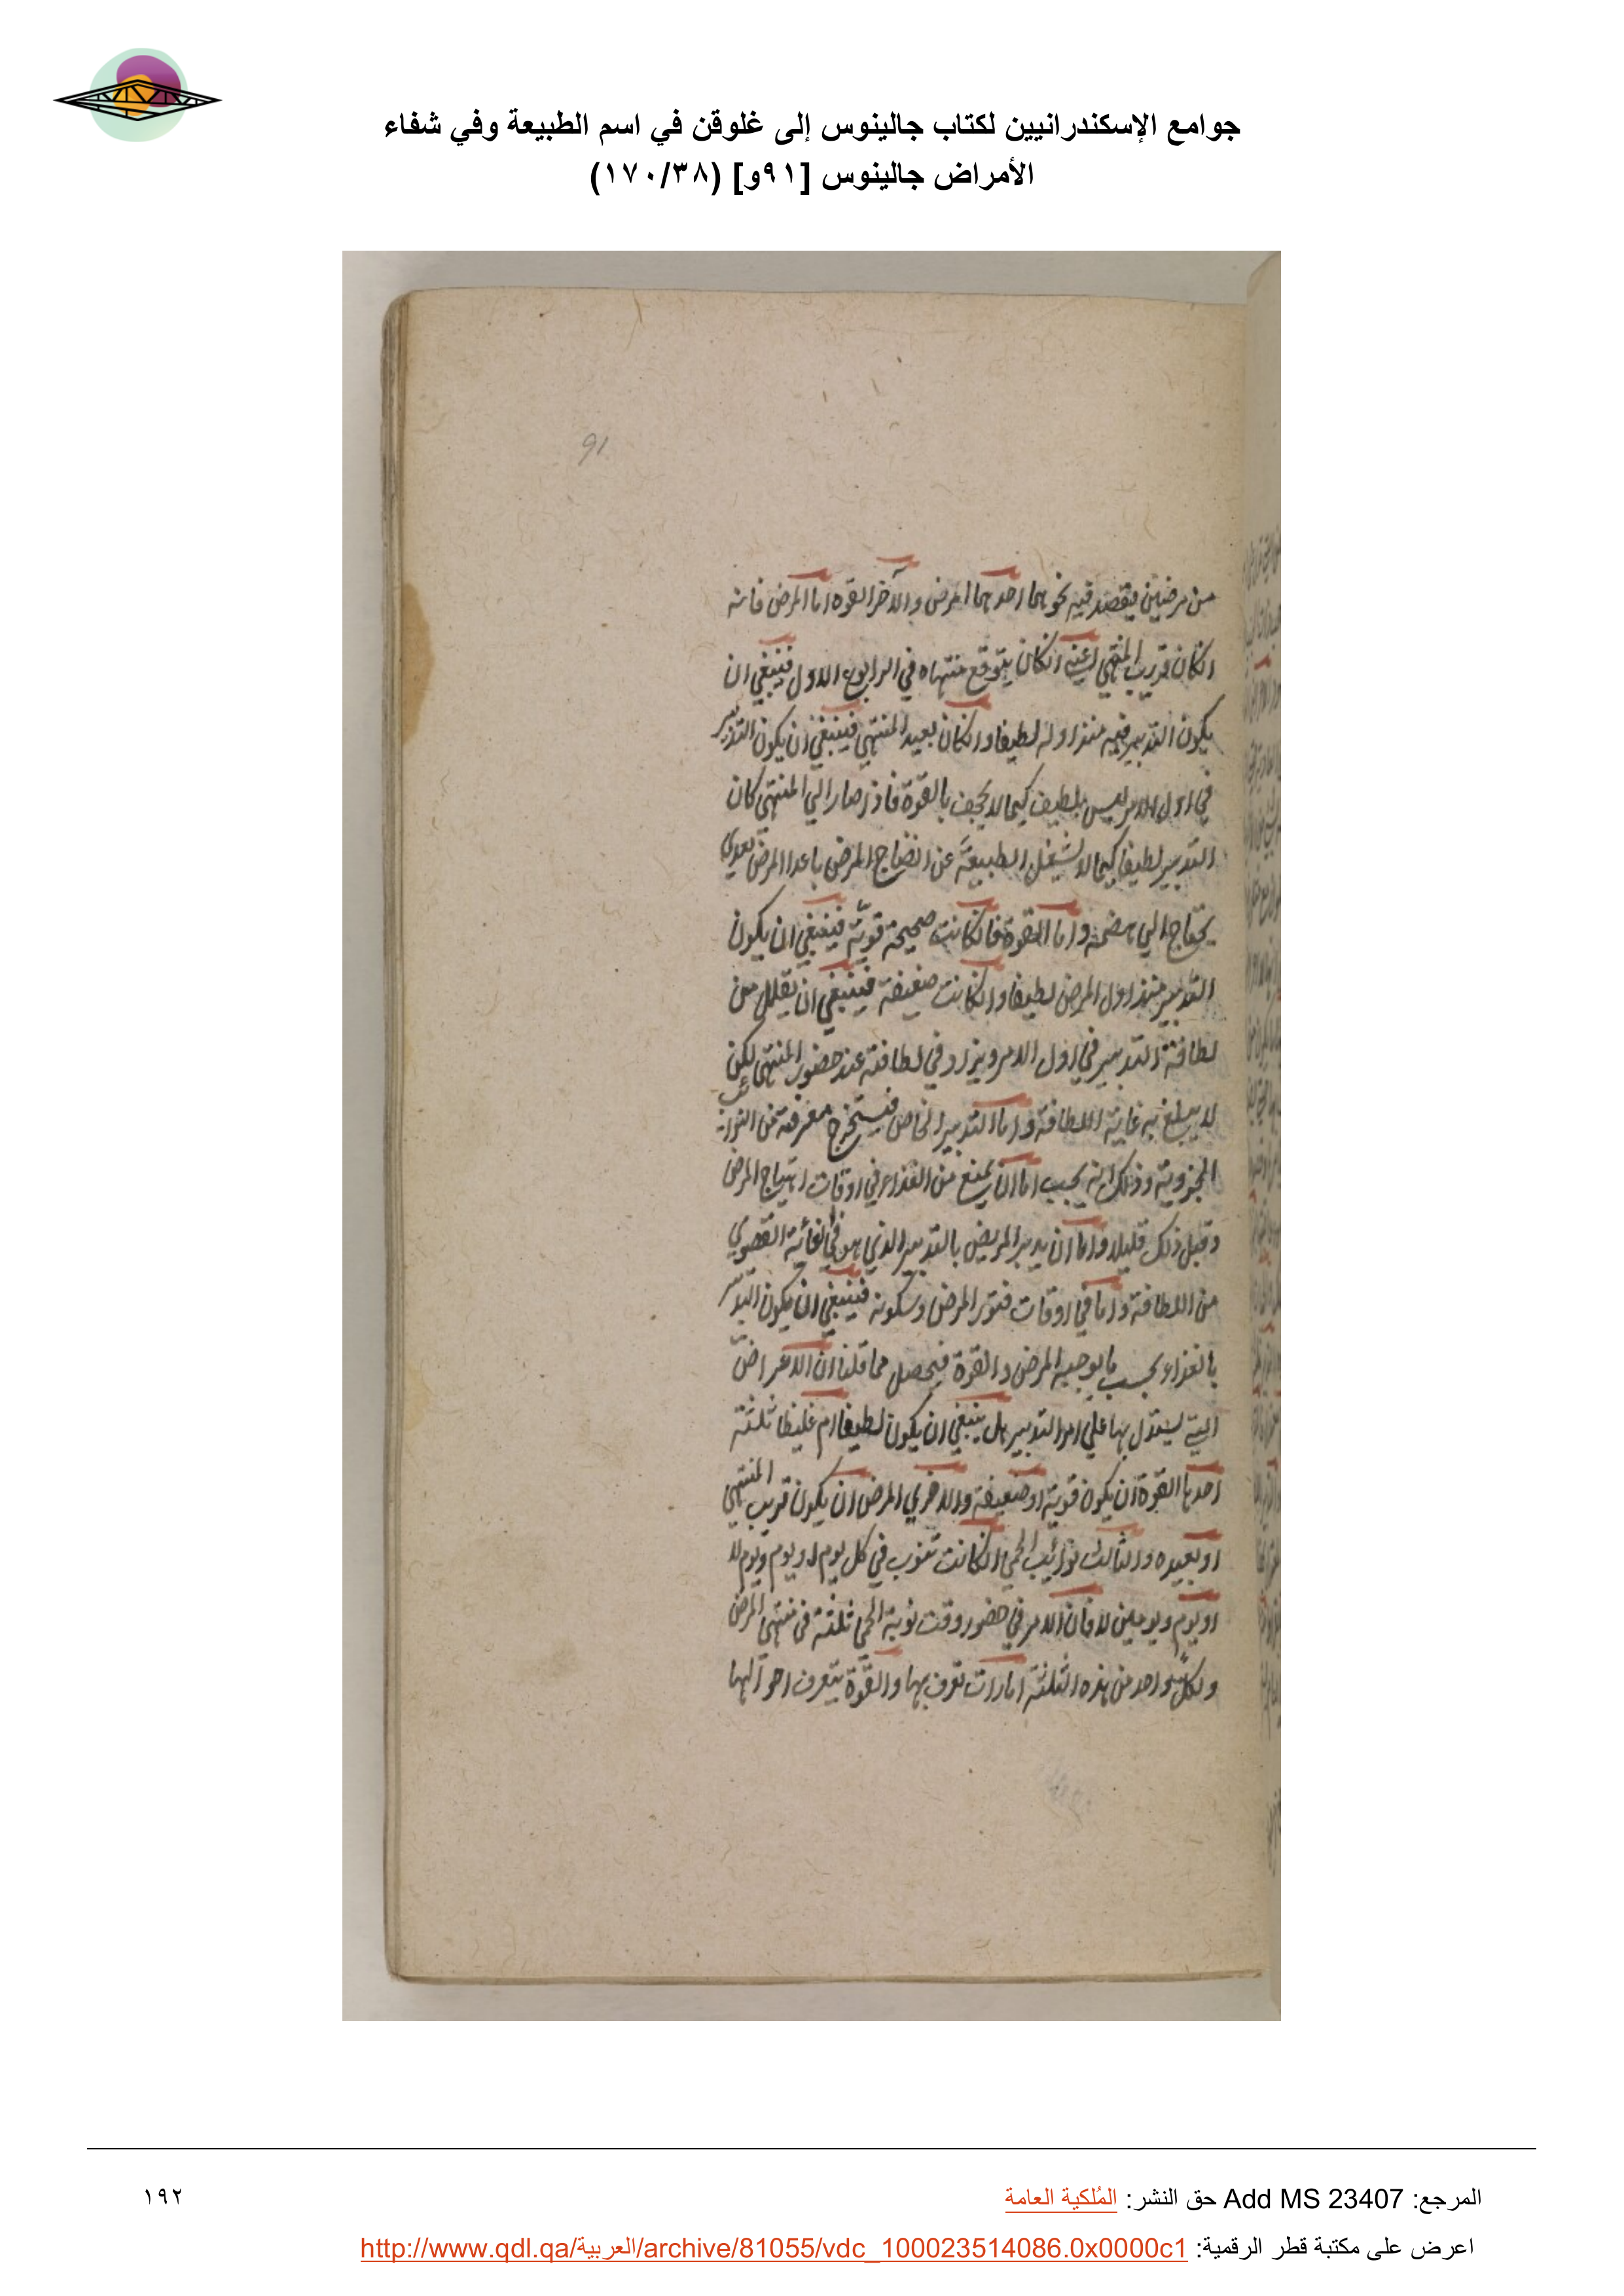 جوامع الإسكندرانيين لكتاب جالينوس إلى غلوقن في اسم الطبيعة وفي شفاء
الأمراض جالينوس [٩١و] (١٧٠/٣٨)
91
من مرضين فيقصد فيه نحوهما احدهما المرض والآخر القوه اما المرض فانه
انكان قريب المنتهي اعني انكان يتوقع منتهاه في الرابوع الاول فينبغي ان
يكون التدبير فيه منذ اوله لطيفا وانكان بعيد المنتهي فينبغي ان يكون التدبير
في اول الامر ليس بلطيف كيما لا يجحف بالقوة فاذا صار الي المنتهي كان
التدبير لطيفا كيما لا تشغل الطبيعة عن انضاج المرض
يحتاج الي هضمه واما القوة فانكانت صحيحة قويّة فينبغي ان يكون
التدبير منذ اول المرض لطيفا وانكانت ضعيفة فينبغي ان يقلل من
لطافة التدبير في اول الامر ويزاد في لطافته عند حضور المنتهي لكن
لا يبلغ به غاية اللطافة واما التدبير الخاص فيستخرج معرفته من النوائب
الجزوية وذلك انه يجب اما ان يمنع من الغذاء في اوقات اهتياج المرض
وقبل ذلك قليلا واما ان يدبر المريض بالتدبير الذي هو في الغاية القصوي
من اللطافة واما في اوقات فتور المرض وسكونه فينبغي ان يكون التدبير
بالغذاء بحسب ما يوجبه المرض والقوة فيحصل مما قلنا ان الاعراض
التي يستدل بها علي امر التدبير هل ينبغي ان يكون لطيفا ام غليظا ثلثة
احدها القوة ان يكون قوية او ضعيفة والاخري المرض ان يكون قريب المنتهي
او بعيده والثالث نوائب الحمي انكانت تنوب في كل يوم او يوم ويوم لا
او يوم ويومين لا فان الامر في حضور وقت نوبة الحمي ثلثة في منتهي المرض
ولكل واحد من هذه الثلثة امارات تعرف بها والقوّة يتعرف احوالها
المرجع: Add MS 23407 حق النشر: المُلكية العامة
١٩٢
اعرض على مكتبة قطر الرقمية: http://www.qdl.qa/العربية/archive/81055/vdc_100023514086.0x0000c1